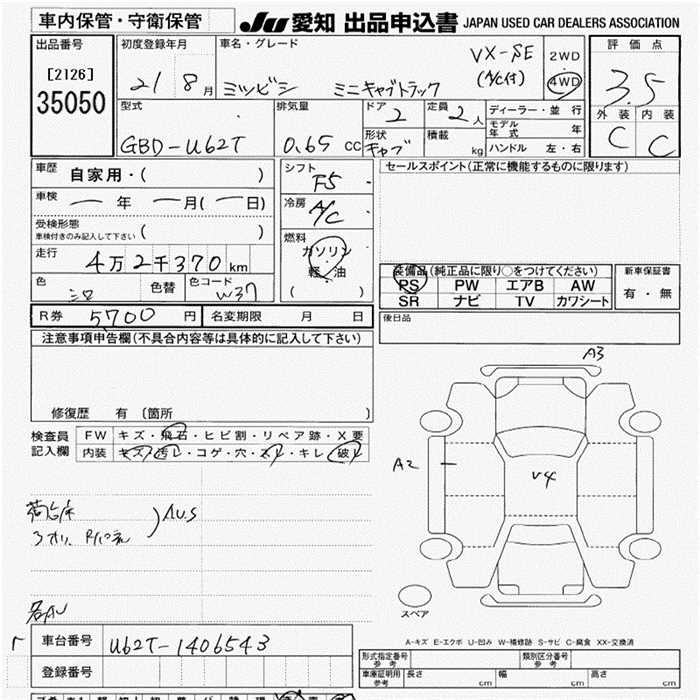 車内保管・守衛保管
JU 愛知 出品申込書 JAPAN USED CAR DEALERS ASSOCIATION
出品番号
[2126]
35050
初度登録年月
21 8 月
車名・グレード
ミツビシ ミニキャブトラック
VX-SE
(A/C付)
2WD
4WD
評価点
3.5
外装 内装
C C
型式
GBD-U62T
排気量
0.65 cc
ドア
2
形状
キャブ
定員
2人
積載
kg
ディーラー・並行
モデル年式 年
ハンドル 左・右
車歴
自家用・( )
車検
— 年 — 月(— 日)
受検形態
車検付きのみ記入して下さい ( )
走行
4万2千370 km
色
シロ
色替
色コード
W37
シフト
F5
冷房
A/C
燃料
ガソリン
軽油
( )
セールスポイント(正常に機能するものに限ります)
装備品(純正品に限り○をつけてください)
PS PW エアB AW
SR ナビ TV カワシート
新車保証書
有・無
R券 5700 円
名変期限 月 日
後日品
注意事項申告欄(不具合内容等は具体的に記入して下さい)
修復歴 有 〔箇所 〕
検査員
記入欄
FW キズ・飛石・ヒビ割・リペア跡・X要
内装 キズ・汚レ・コゲ・穴・スレ・キレ・破レ
荷台床
AUS
各AU
A3
A2
V4
スペア
A-キズ E-エクボ U-凹み W-補修跡 S-サビ C-腐食 XX-交換済
車台番号 U62T-1406543
登録番号
形式指定番号
参考
類別区分番号
参考
車庫証明用
参考
長さ cm 幅 cm 高さ cm